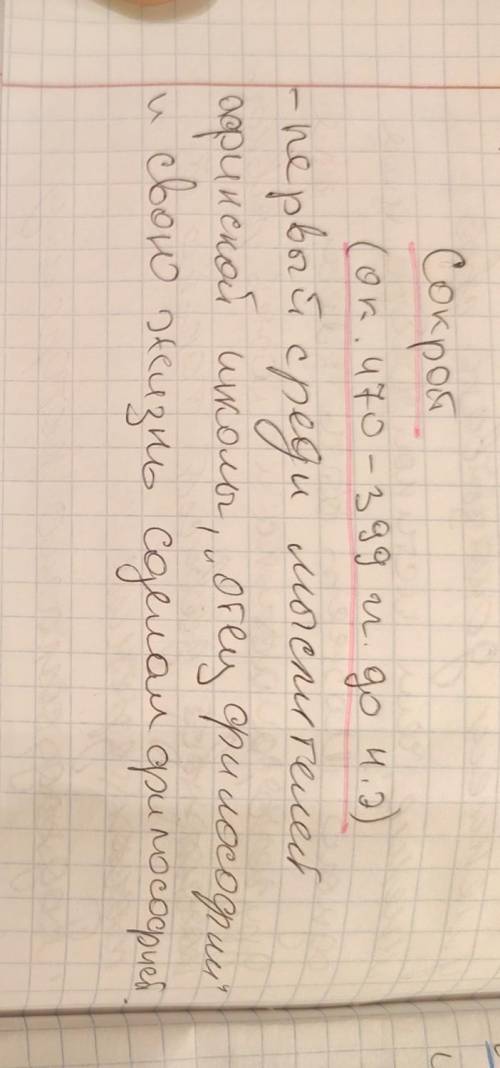 Сократ
(ок. 470 - 399 гг. до н.э)
- первый среди мыслителей
афинской школы, „отец философии“
и свою жизнь сделал философией.